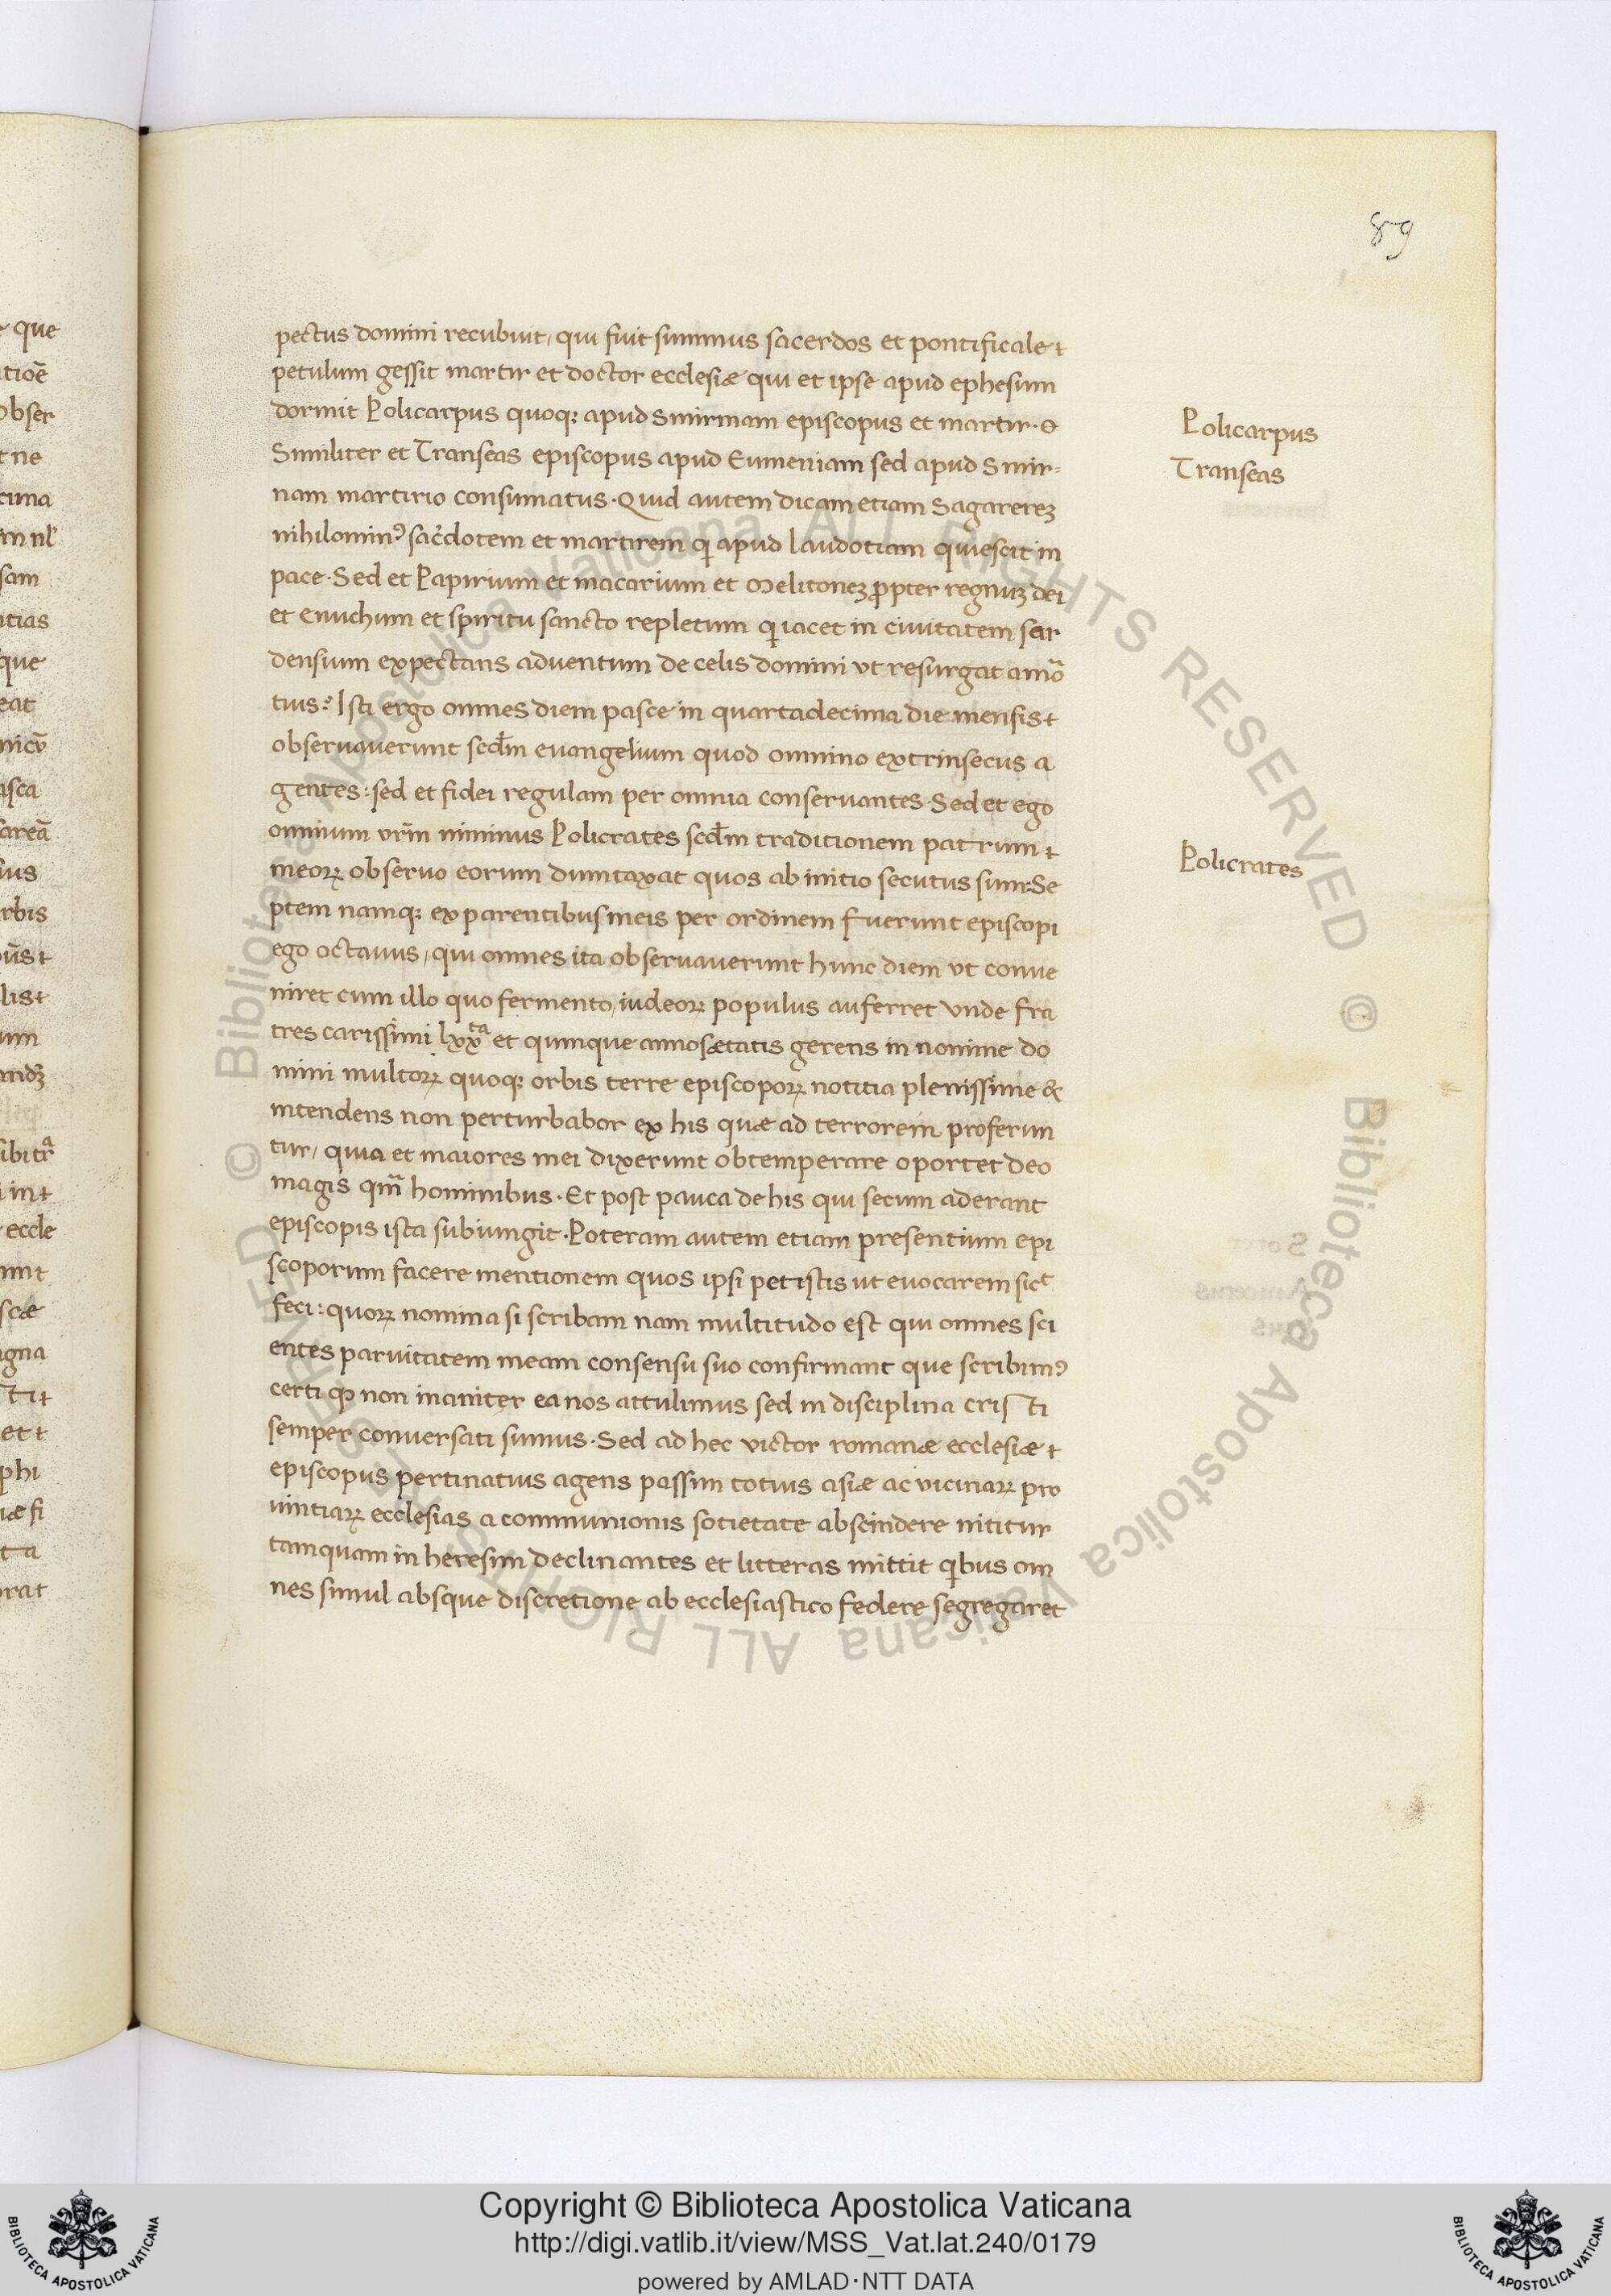 89
pectus domini recubuit, qui fuit summus sacerdos et pontificale
petulum gessit martir et doctor ecclesiæ qui et ipse apud ephesum
dormit Policarpus quoq; apud Smirnam episcopus et martir.
Similiter et Transeas episcopus apud Eumeniam sed apud Smir-
nam martirio consumatus. Quid autem dicam etiam Sagarerez
nihilominꝰ sac̄dotem et martirem q apud laudotiam quiescit in
pace. Sed et Papirium et macarium et Melitonez ꝓpter regnuz dei
et enuchum et spiritu sancto repletum q iacet in civitatem sar
densium expectans adventum de celis domini ut resurgat a mo᷒r
tuis. Isti ergo omnes diem pasce in quartadecima die mensis
observaverunt scd̄m evangelium quod omnino extrinsecus a
gentes: sed et fidei regulam per omnia conservantes. Sed et ego
omnium vr̄m minimus Policrates scd̄m traditionem patrum
meoꝝ observo eorum dumtaxat quos ab initio secutus sum: Se
ptem namq; ex parentibus meis per ordinem fuerunt episcopi
ego octavus, qui omnes ita observaverunt hunc diem ut conve
niret cum illo quo fermento, iudeoꝝ populus auferret unde fra
tres carissimi lxxta et quinque annos ætatis gerens in nomine do
mini multoꝝ quoq; orbis terre episcopoꝝ notitia plenissime &
intendens non perturbabor ex his quæ ad terrorem proferun
tur, quia et maiores mei dixerunt obtemperare oportet deo
magis qm̄ hominibus. Et post pauca de his qui secum aderant
episcopis ista subiungit. Poteram autem etiam presentium epi
scoporum facere mentionem quos ipsi petistis ut evocarem sict
feci: quoꝝ nomina si scribam nam multitudo est qui omnes sci
entes parvitatem meam consensu suo confirmant que scribimꝰ
certi ꝙ non inaniter ea nos attulimus sed in disciplina cristi
semper conversati sumus. Sed ad hec victor romanæ ecclesiæ
episcopus pertinatius agens passim totius asiæ ac vicinaꝝ pro
vintiaꝝ ecclesias a communionis societate abscindere nititur
tamquam in heresim declinantes et litteras mittit qbus om
nes simul absque discretione ab ecclesiastico federe segregaret
Policarpus
Transeas
Policrates
© Biblioteca Apostolica Vaticana ALL RIGHTS RESERVED © Biblioteca Apostolica Vaticana ALL RIGHTS RESERVED
Copyright © Biblioteca Apostolica Vaticana
http://digi.vatlib.it/view/MSS_Vat.lat.240/0179
powered by AMLAD·NTT DATA
BIBLIOTECA APOSTOLICA VATICANA
BIBLIOTECA APOSTOLICA VATICANA